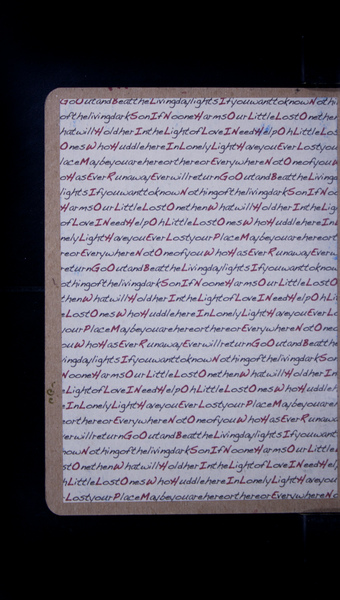 GoOutandBeattheLivingdaylightsIfyouwanttoknowNothi
ofthelivingdarkSonIfNooneHarmsOurLittleLostOnethen
hatwillHoldherIntheLightofLoveINeedHelpOhLittleLos
OnesWhoHuddlehereInLonelyLightHaveyouEverLostyour
laceMaybeyouarehereorthereorEverywhereNotOneofyouW
oHasEverRunawayEverwillreturnGoOutandBeattheLiving
lightsIfyouwanttoknowNothingofthelivingdarkSonIfNoo
HarmsOurLittleLostOnethenWhatwillHoldherIntheLigh
ofLoveINeedHelpOhLittleLostOnesWhoHuddlehereIn
nelyLightHaveyouEverLostyourPlaceMaybeyouarehereort
reorEverywhereNotOneofyouWhoHasEverRunawayEverw
returnGoOutandBeattheLivingdaylightsIfyouwanttoknow
othingofthelivingdarkSonIfNooneHarmsOurLittleLostO
thenWhatwillHoldherIntheLightofLoveINeedHelpOhLi
LostOnesWhoHuddlehereInLonelyLightHaveyouEverLo
yourPlaceMaybeyouarehereorthereorEverywhereNotOneo
ouWhoHasEverRunawayEverwillreturnGoOutandBeatthe
vingdaylightsIfyouwanttoknowNothingofthelivingdarkSon
NooneHarmsOurLittleLostOnethenWhatwillHoldherIn
eLightofLoveINeedHelpOhLittleLostOnesWhoHuddleh
eInLonelyLightHaveyouEverLostyourPlaceMaybeyouareh
eorthereorEverywhereNotOneofyouWhoHasEverRunaw
verwillreturnGoOutandBeattheLivingdaylightsIfyouwant
nowNothingofthelivingdarkSonIfNooneHarmsOurLittl
stOnethenWhatwillHoldherIntheLightofLoveINeedHel
hLittleLostOnesWhoHuddlehereInLonelyLightHaveyou
LostyourPlaceMaybeyouarehereorthereorEverywhereNo